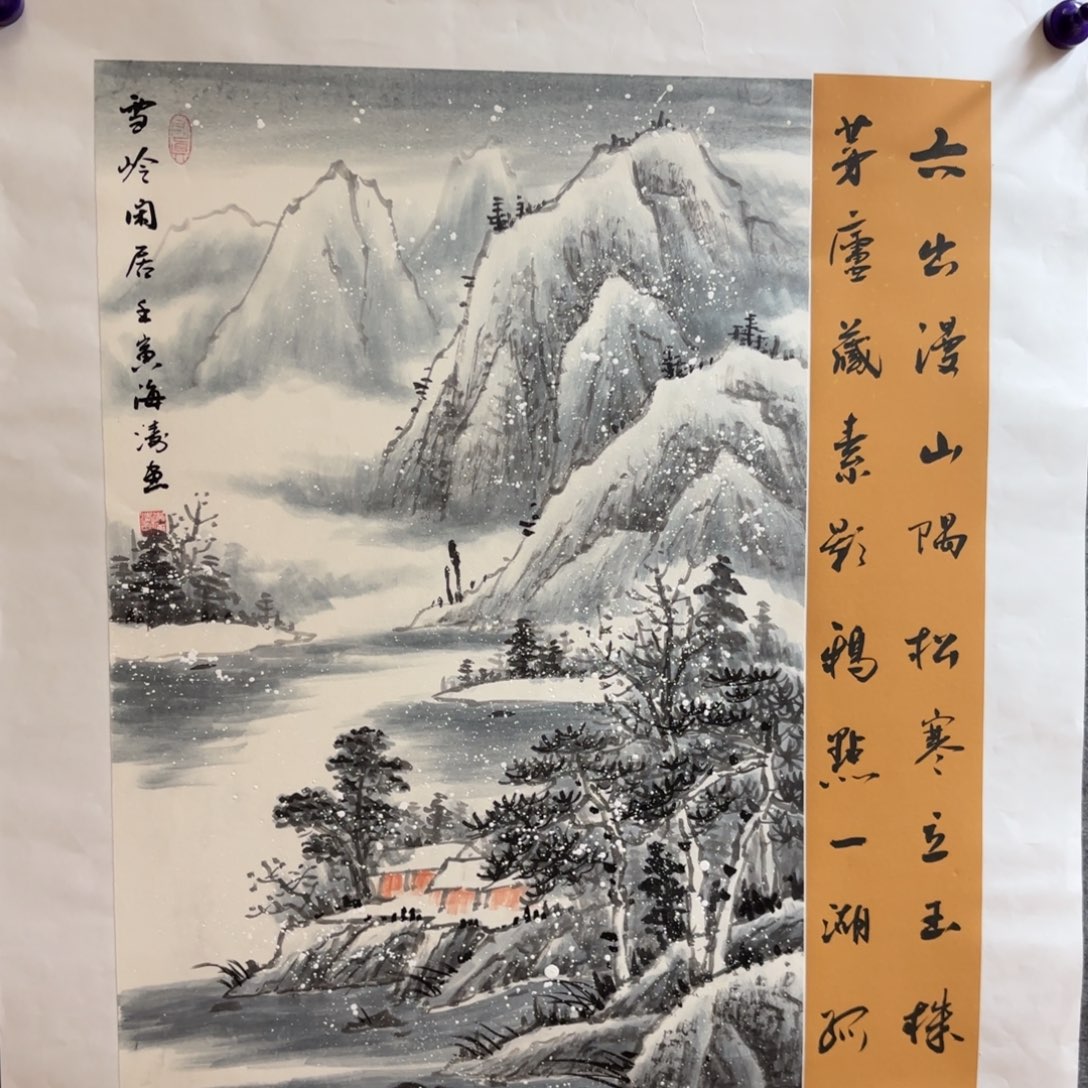 六出漫山隅松寒立玉株
茅廬藏素影鴉點一湖孤
雪岭闲居壬寅海涛画